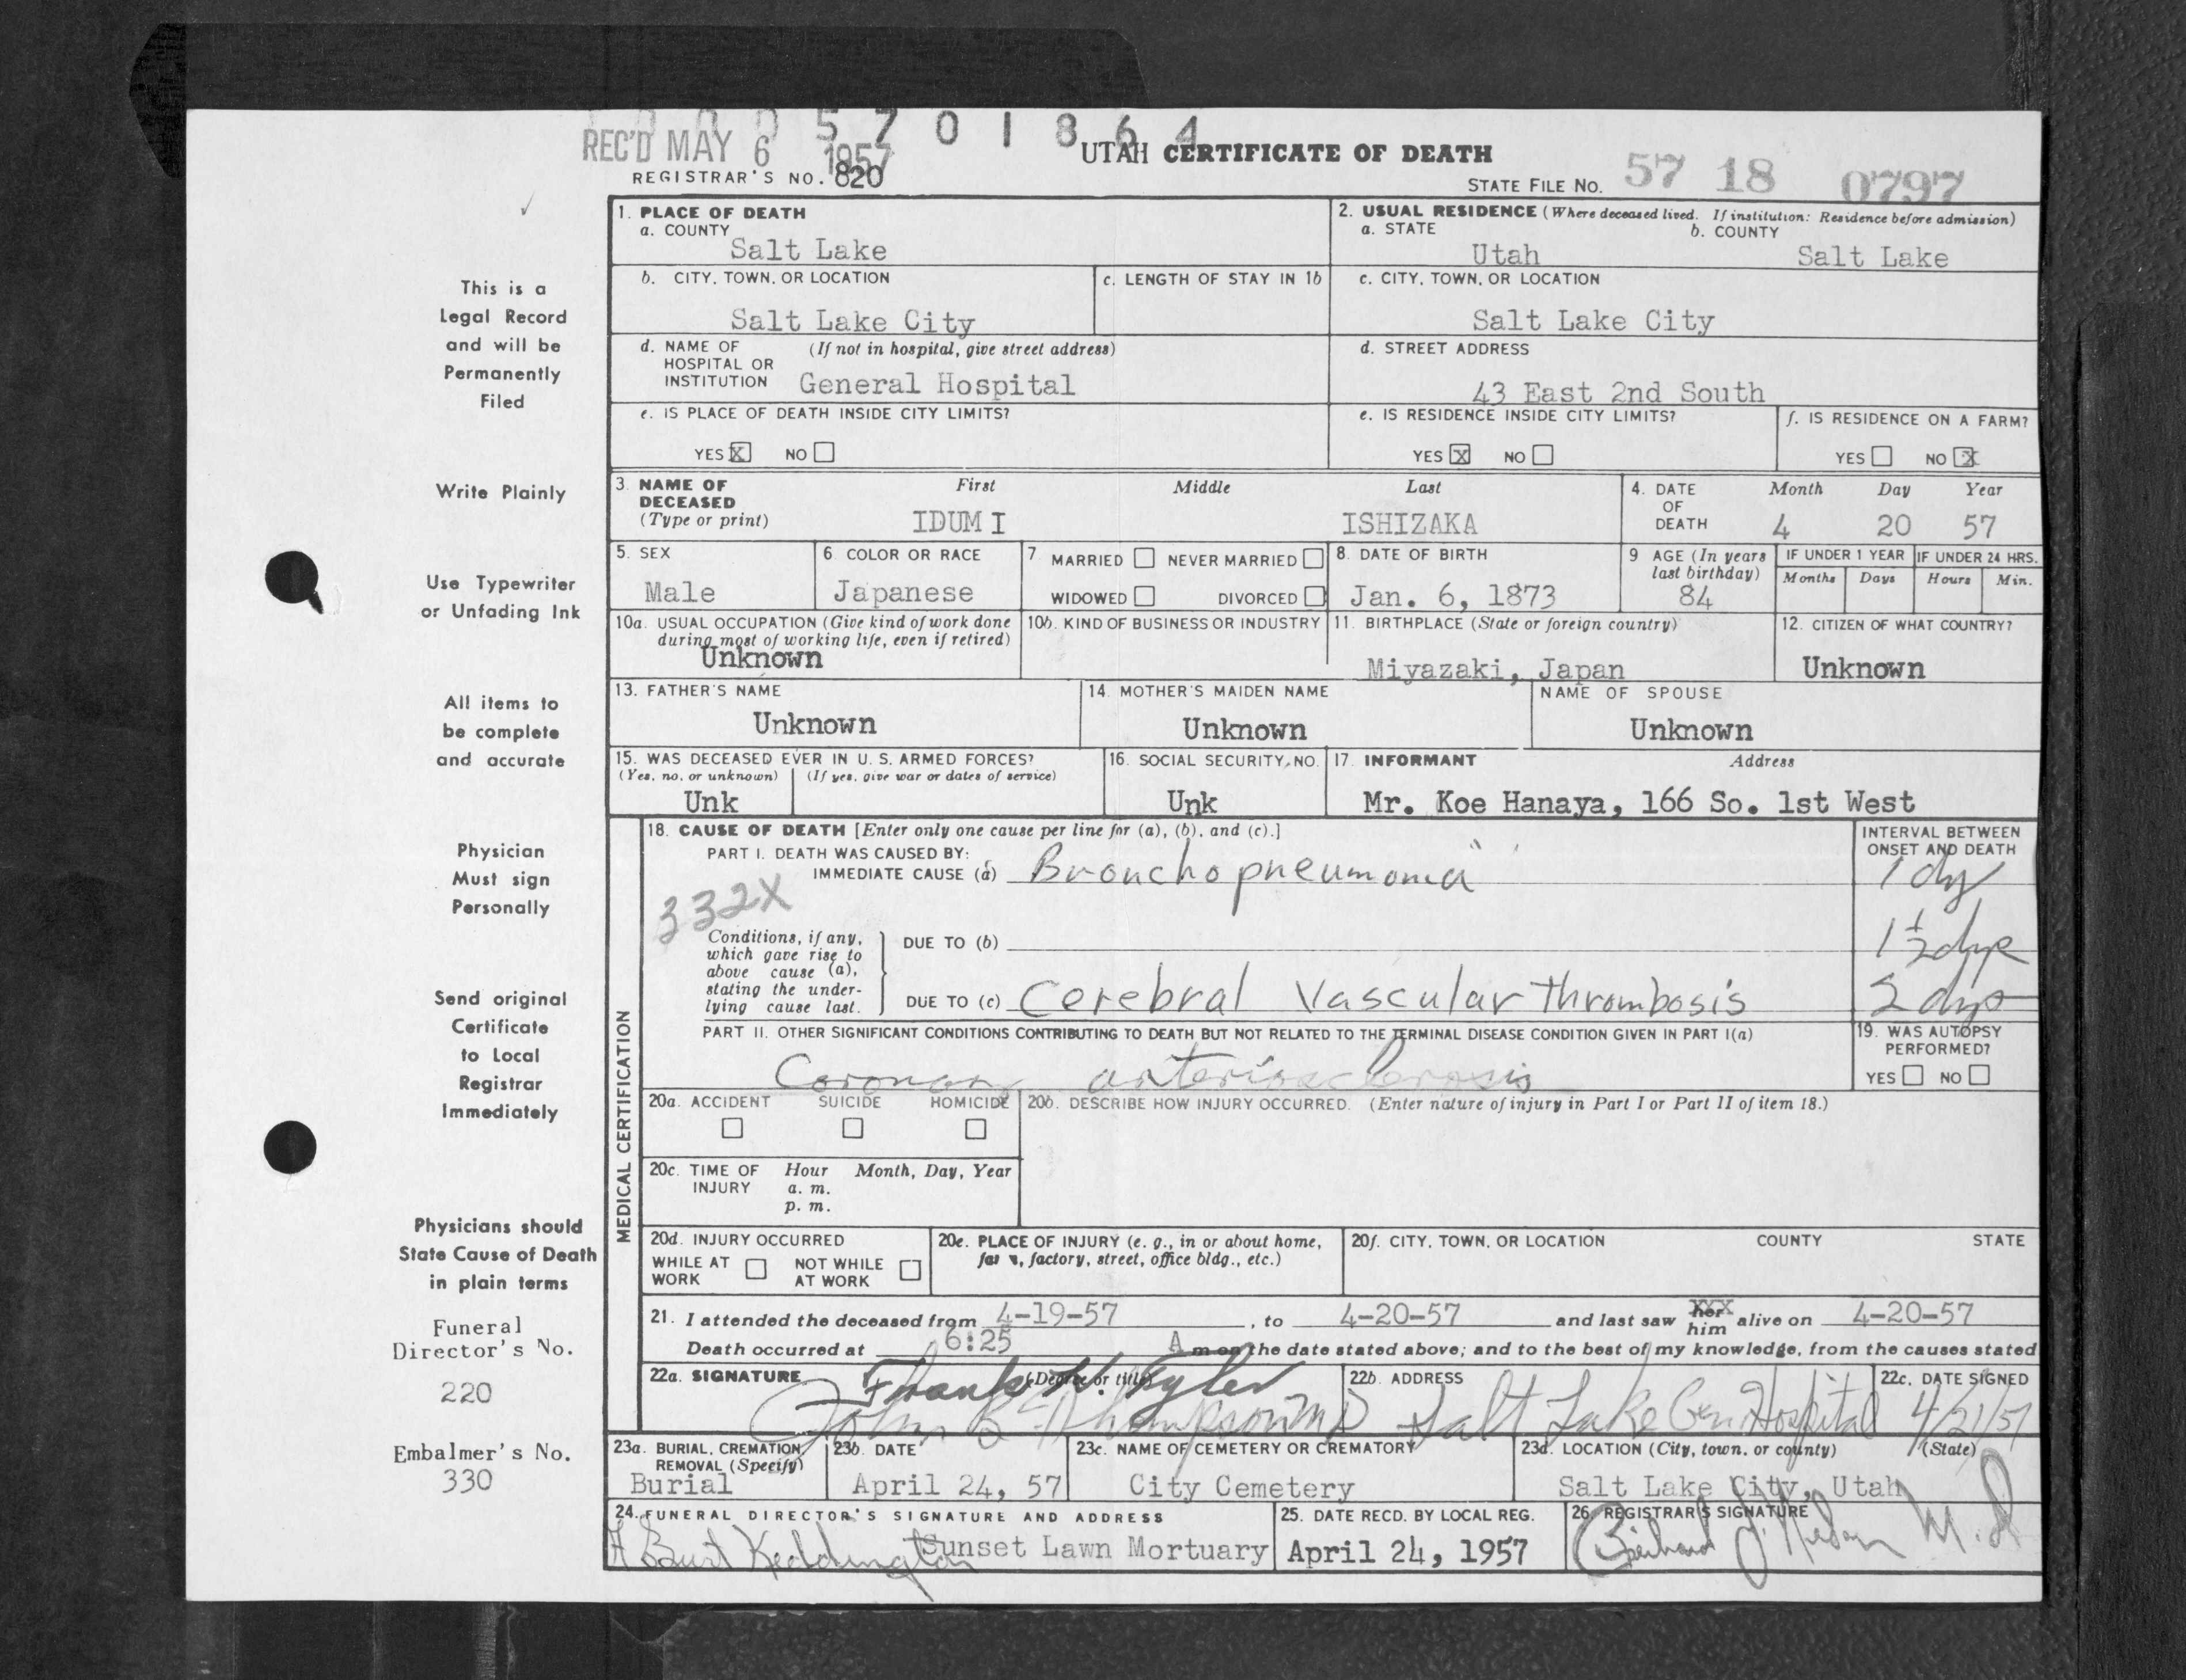 0 0 0 5 7 0 1 8 6 4
REC'D MAY 6 1957
UTAH CERTIFICATE OF DEATH
REGISTRAR'S NO. 820
STATE FILE NO. 57 18 0797
1. PLACE OF DEATH
a. COUNTY
Salt Lake
2. USUAL RESIDENCE (Where deceased lived. If institution: Residence before admission)
a. STATE b. COUNTY
Utah Salt Lake
b. CITY, TOWN, OR LOCATION
Salt Lake City
c. LENGTH OF STAY IN 1b
c. CITY, TOWN, OR LOCATION
Salt Lake City
d. NAME OF (If not in hospital, give street address)
HOSPITAL OR
INSTITUTION General Hospital
d. STREET ADDRESS
43 East 2nd South
e. IS PLACE OF DEATH INSIDE CITY LIMITS?
YES X NO
e. IS RESIDENCE INSIDE CITY LIMITS?
YES X NO
f. IS RESIDENCE ON A FARM?
YES NO X
3. NAME OF First Middle Last
DECEASED
(Type or print) IDUMI ISHIZAKA
4. DATE Month Day Year
OF
DEATH 4 20 57
5. SEX
Male
6. COLOR OR RACE
Japanese
7 MARRIED NEVER MARRIED
WIDOWED DIVORCED
8. DATE OF BIRTH
Jan. 6, 1873
9 AGE (In years
last birthday)
84
IF UNDER 1 YEAR IF UNDER 24 HRS.
Months Days Hours Min.
10a. USUAL OCCUPATION (Give kind of work done
during most of working life, even if retired)
Unknown
10b. KIND OF BUSINESS OR INDUSTRY
11. BIRTHPLACE (State or foreign country)
Miyazaki, Japan
12. CITIZEN OF WHAT COUNTRY?
Unknown
13. FATHER'S NAME
Unknown
14. MOTHER'S MAIDEN NAME
Unknown
NAME OF SPOUSE
Unknown
15. WAS DECEASED EVER IN U. S. ARMED FORCES?
(Yes, no, or unknown) (If yes, give war or dates of service)
Unk
16. SOCIAL SECURITY NO.
Unk
17. INFORMANT Address
Mr. Koe Hanaya, 166 So. 1st West
MEDICAL CERTIFICATION
18. CAUSE OF DEATH [Enter only one cause per line for (a), (b), and (c).]
PART I. DEATH WAS CAUSED BY:
IMMEDIATE CAUSE (a) Bronchopneumonia
INTERVAL BETWEEN
ONSET AND DEATH
1 dy
332X
Conditions, if any,
which gave rise to
above cause (a),
stating the under-
lying cause last.
DUE TO (b)
1½ dys
DUE TO (c) Cerebral Vascular thrombosis
2 dys
PART II. OTHER SIGNIFICANT CONDITIONS CONTRIBUTING TO DEATH BUT NOT RELATED TO THE TERMINAL DISEASE CONDITION GIVEN IN PART I(a)
Coronary arteriosclerosis
19. WAS AUTOPSY
PERFORMED?
YES NO
20a. ACCIDENT SUICIDE HOMICIDE
20b. DESCRIBE HOW INJURY OCCURRED. (Enter nature of injury in Part I or Part II of item 18.)
20c. TIME OF Hour Month, Day, Year
INJURY a. m.
p. m.
20d. INJURY OCCURRED
WHILE AT NOT WHILE
WORK AT WORK
20e. PLACE OF INJURY (e. g., in or about home,
farm, factory, street, office bldg., etc.)
20f. CITY, TOWN, OR LOCATION COUNTY STATE
21. I attended the deceased from 4-19-57, to 4-20-57 and last saw her him alive on 4-20-57
Death occurred at 6:25 A m on the date stated above; and to the best of my knowledge, from the causes stated
22a. SIGNATURE (Degree or title)
Frank H. Tyler
John R Thompson MD
22b. ADDRESS
Salt Lake Gen Hospital
22c. DATE SIGNED
4/21/57
23a. BURIAL, CREMATION,
REMOVAL (Specify)
Burial
23b. DATE
April 24, 57
23c. NAME OF CEMETERY OR CREMATORY
City Cemetery
23d. LOCATION (City, town, or county) (State)
Salt Lake City, Utah
24. FUNERAL DIRECTOR'S SIGNATURE AND ADDRESS
A Burt Keddington Sunset Lawn Mortuary
25. DATE RECD. BY LOCAL REG.
April 24, 1957
26. REGISTRAR'S SIGNATURE
M.D.
This is a
Legal Record
and will be
Permanently
Filed
Write Plainly
Use Typewriter
or Unfading Ink
All items to
be complete
and accurate
Physician
Must sign
Personally
Send original
Certificate
to Local
Registrar
Immediately
Physicians should
State Cause of Death
in plain terms
Funeral
Director's No.
220
Embalmer's No.
330